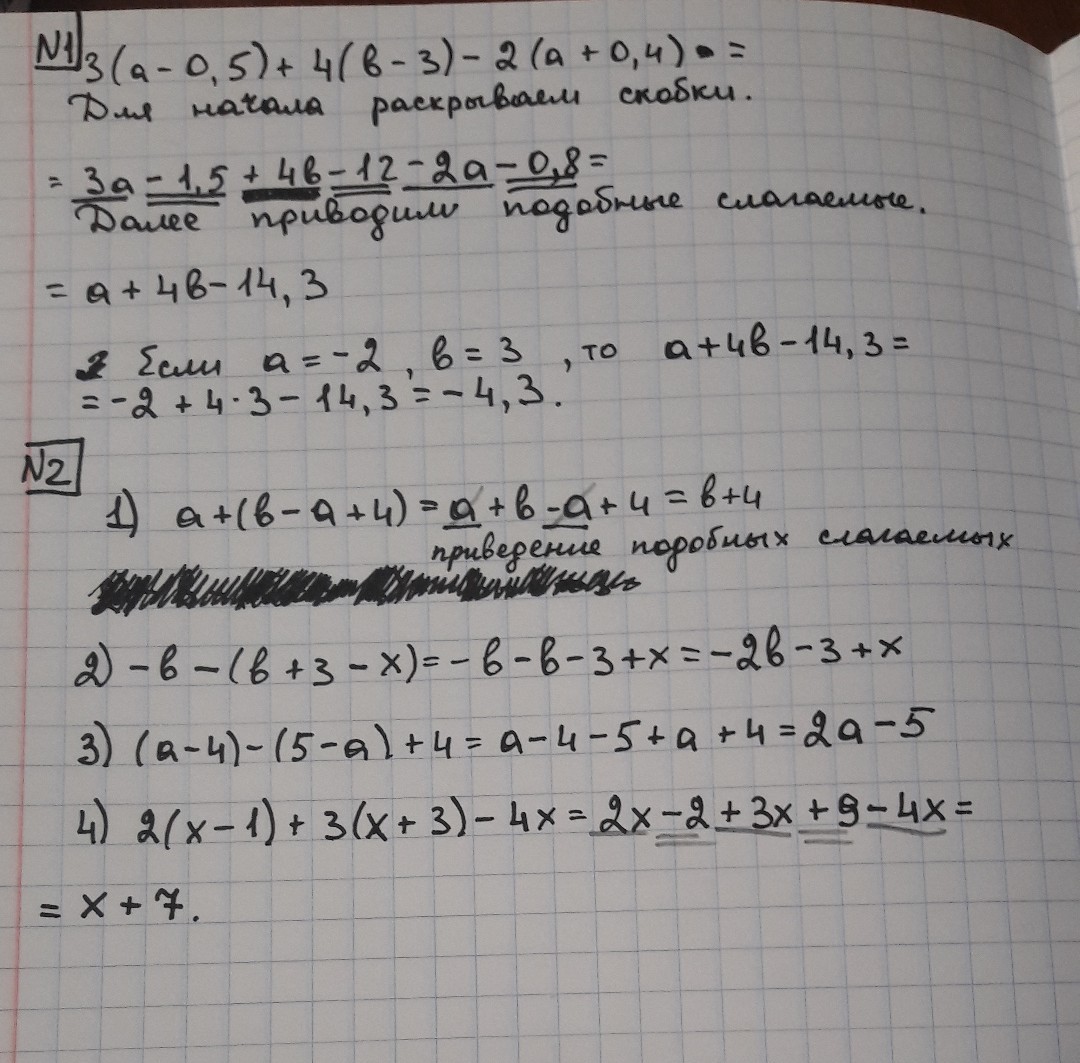 N1 3(a-0,5)+4(в-3)-2(a+0,4) =
Для начала раскрываем скобки.
= 3a-1,5+4в-12-2a-0,8=
Далее приводим подобные слагаемые.
= a+4в-14,3
Если a=-2, в=3, то a+4в-14,3=
=-2+4·3-14,3=-4,3.
N2
1) a+(в-a+4)=a+в-a+4=в+4
приведение подобных слагаемых
2) -в-(в+3-x)=-в-в-3+x=-2в-3+x
3) (a-4)-(5-a)+4=a-4-5+a+4=2a-5
4) 2(x-1)+3(x+3)-4x=2x-2+3x+9-4x=
= x+7.